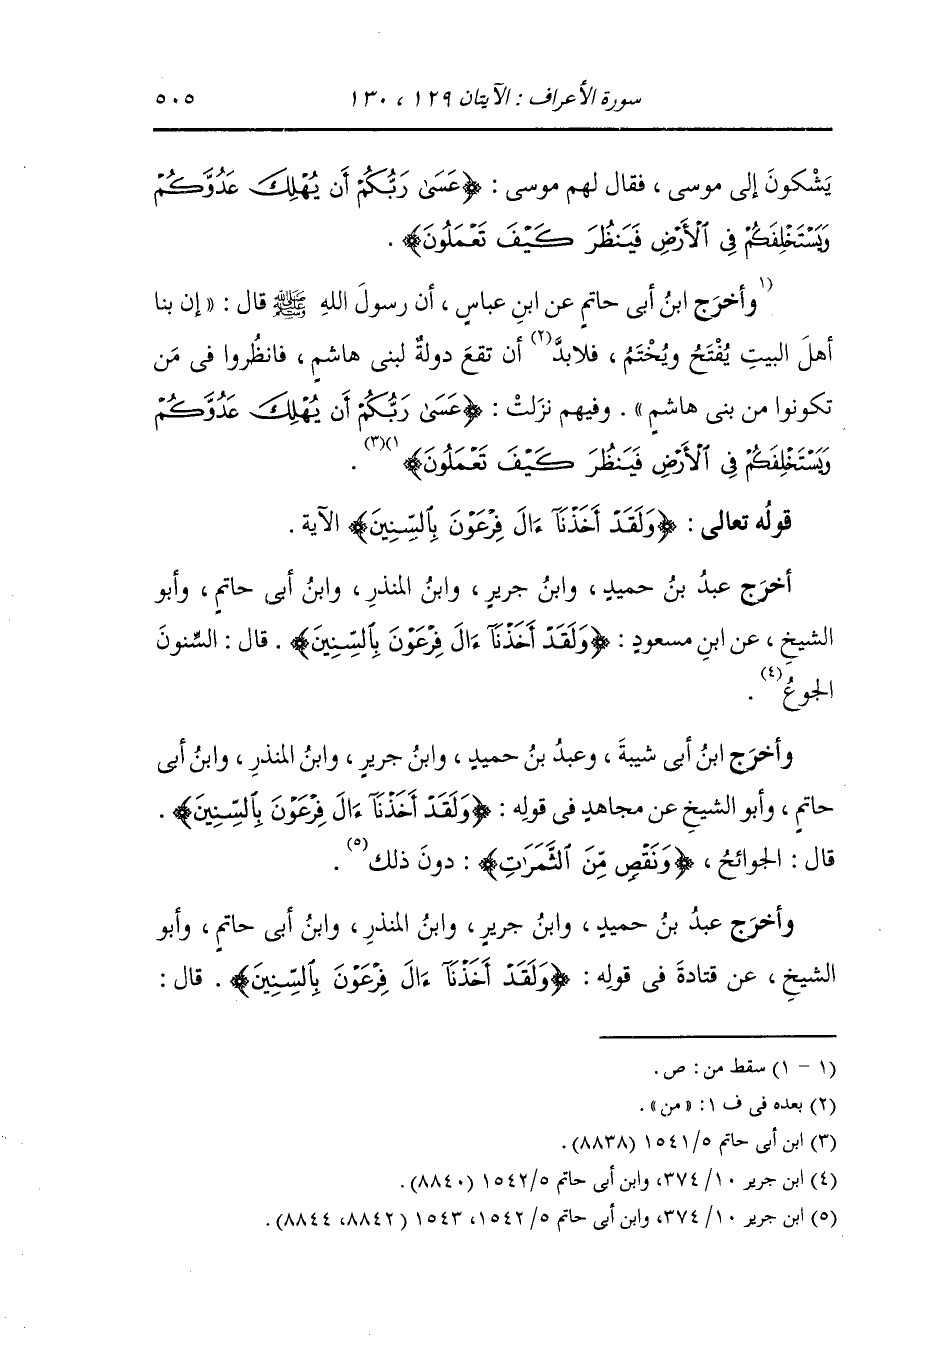 سورة الأعراف : الآيتان ١٢٩ ، ١٣٠ ٥٠٥
يَشْكونَ إلى موسى ، فقال لهم موسى : ﴿عَسَىٰ رَبُّكُمْ أَن يُهْلِكَ عَدُوَّكُمْ
وَيَسْتَخْلِفَكُمْ فِى ٱلْأَرْضِ فَيَنظُرَ كَيْفَ تَعْمَلُونَ﴾ .
(١وأخرَج ابنُ أبى حاتمٍ عن ابنِ عباسٍ ، أن رسولَ اللهِ ﷺ قال : « إن بنا
أهلَ البيتِ يُفْتَحُ ويُخْتَمُ ، فلابدَّ(٢) أن تقعَ دولةٌ لبنى هاشمٍ ، فانظُروا فى مَن
تكونوا من بنى هاشمٍ » . وفيهم نزَلتْ : ﴿عَسَىٰ رَبُّكُمْ أَن يُهْلِكَ عَدُوَّكُمْ
وَيَسْتَخْلِفَكُمْ فِى ٱلْأَرْضِ فَيَنظُرَ كَيْفَ تَعْمَلُونَ﴾١)(٣) .
قولُه تعالى : ﴿وَلَقَدْ أَخَذْنَآ ءَالَ فِرْعَوْنَ بِٱلسِّنِينَ﴾ الآية .
أخرَج عبدُ بنُ حميدٍ ، وابنُ جريرٍ ، وابنُ المنذرِ ، وابنُ أبى حاتمٍ ، وأبو
الشيخِ ، عن ابنِ مسعودٍ : ﴿وَلَقَدْ أَخَذْنَآ ءَالَ فِرْعَوْنَ بِٱلسِّنِينَ﴾ . قال : السِّنونَ
الجوعُ(٤) .
وأخرَج ابنُ أبى شيبةَ ، وعبدُ بنُ حميدٍ ، وابنُ جريرٍ ، وابنُ المنذرِ ، وابنُ أبى
حاتمٍ ، وأبو الشيخِ عن مجاهدٍ فى قولِه : ﴿وَلَقَدْ أَخَذْنَآ ءَالَ فِرْعَوْنَ بِٱلسِّنِينَ﴾ .
قال : الجوائحُ ، ﴿وَنَقْصٍ مِّنَ ٱلثَّمَرَٰتِ﴾ : دونَ ذلك(٥) .
وأخرَج عبدُ بنُ حميدٍ ، وابنُ جريرٍ ، وابنُ المنذرِ ، وابنُ أبى حاتمٍ ، وأبو
الشيخِ ، عن قتادةَ فى قولِه : ﴿وَلَقَدْ أَخَذْنَآ ءَالَ فِرْعَوْنَ بِٱلسِّنِينَ﴾ . قال :
(١ - ١) سقط من : ص .
(٢) بعده فى ف ١ : « من » .
(٣) ابن أبى حاتم ١٥٤١/٥ (٨٨٣٨) .
(٤) ابن جرير ٣٧٤/١٠، وابن أبى حاتم ١٥٤٢/٥ (٨٨٤٠) .
(٥) ابن جرير ٣٧٤/١٠، وابن أبى حاتم ١٥٤٢/٥، ١٥٤٣ (٨٨٤٢، ٨٨٤٤) .